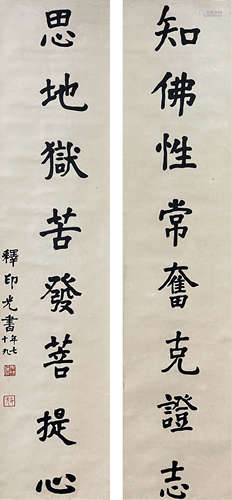 知佛性常奮克證志
思地獄苦發菩提心
釋印光書
年七十九